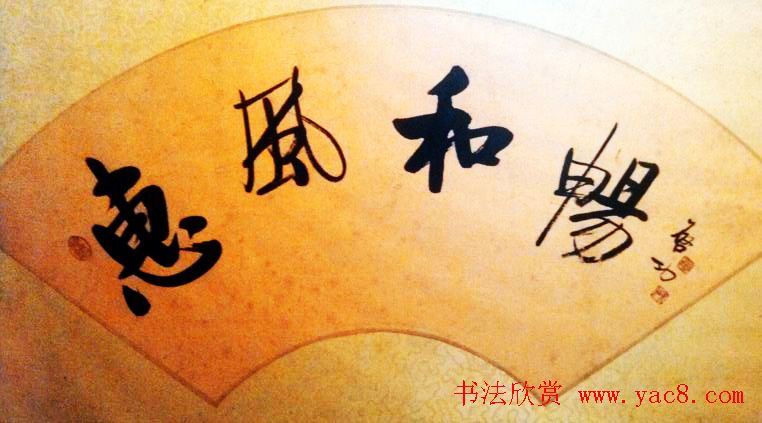 惠風和暢
启功
书法欣赏 www.yac8.com